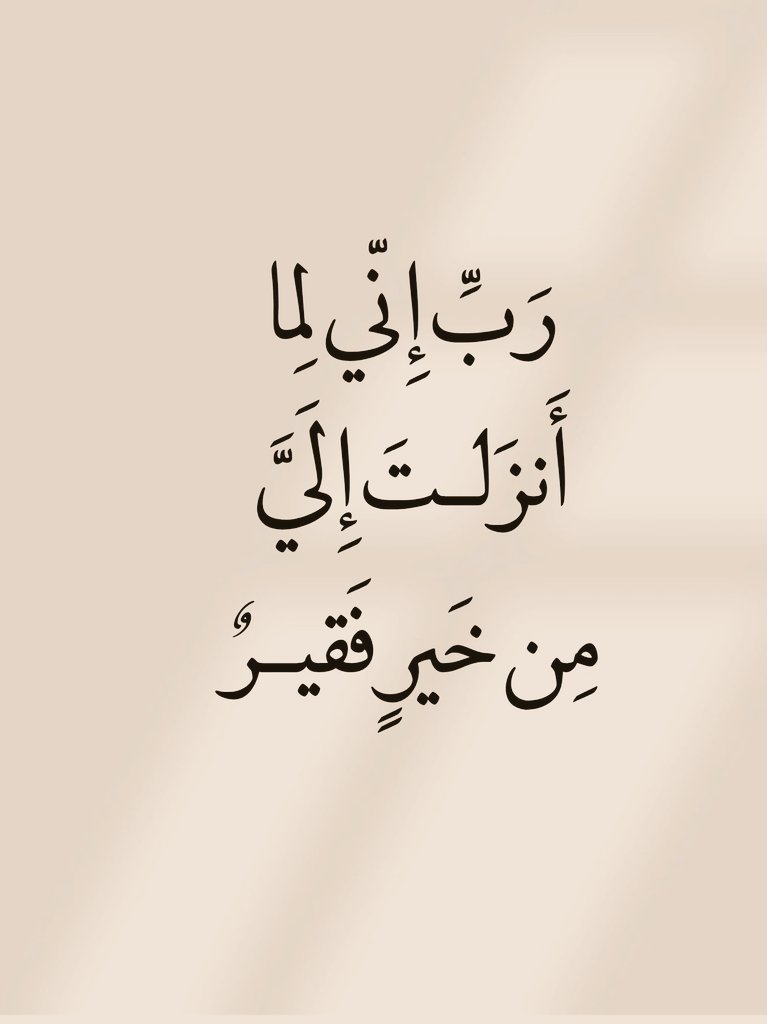 رَبِّ إِنّي لِما
أَنزَلـتَ إِلَيَّ
مِن خَيرٍ فَقيـرٌ